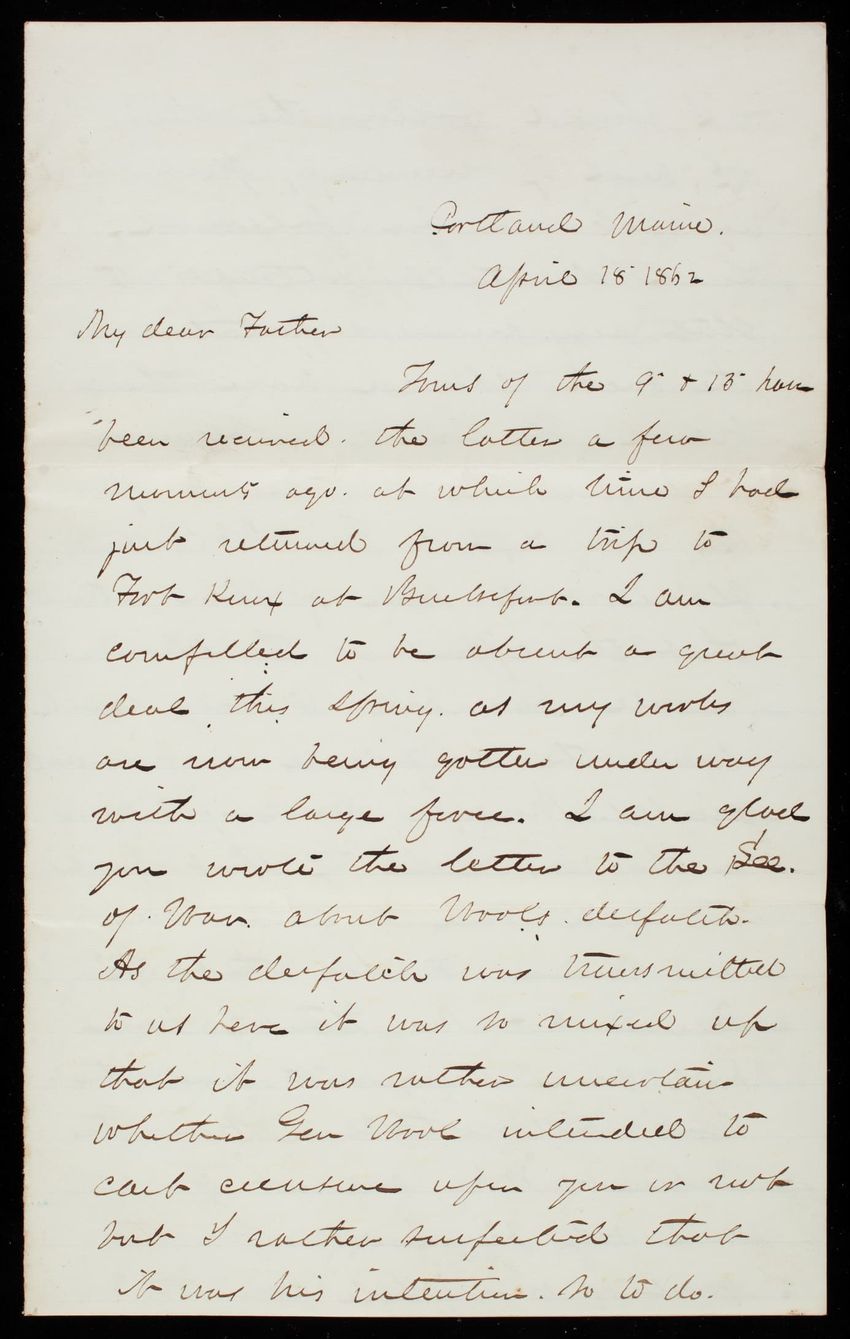 Portland Maine.
April 18 1862
My dear Father
Yours of the 9 & 15 have
been received. the latter a few
moments ago. at which time I had
just returned from a trip to
Fort Knox at Bucksport. I am
compelled to be absent a great
deal this Spring. as my works
are now being gotten under way
with a large force. I am glad
you wrote the letter to the Sec.
of War. about Wools despatch.
As the despatch was transmitted
to us here it was so mixed up
that it was rather uncertain
whether Gen Wool intended to
cast censure upon you or not
but I rather suspected that
it was his intention. so to do.